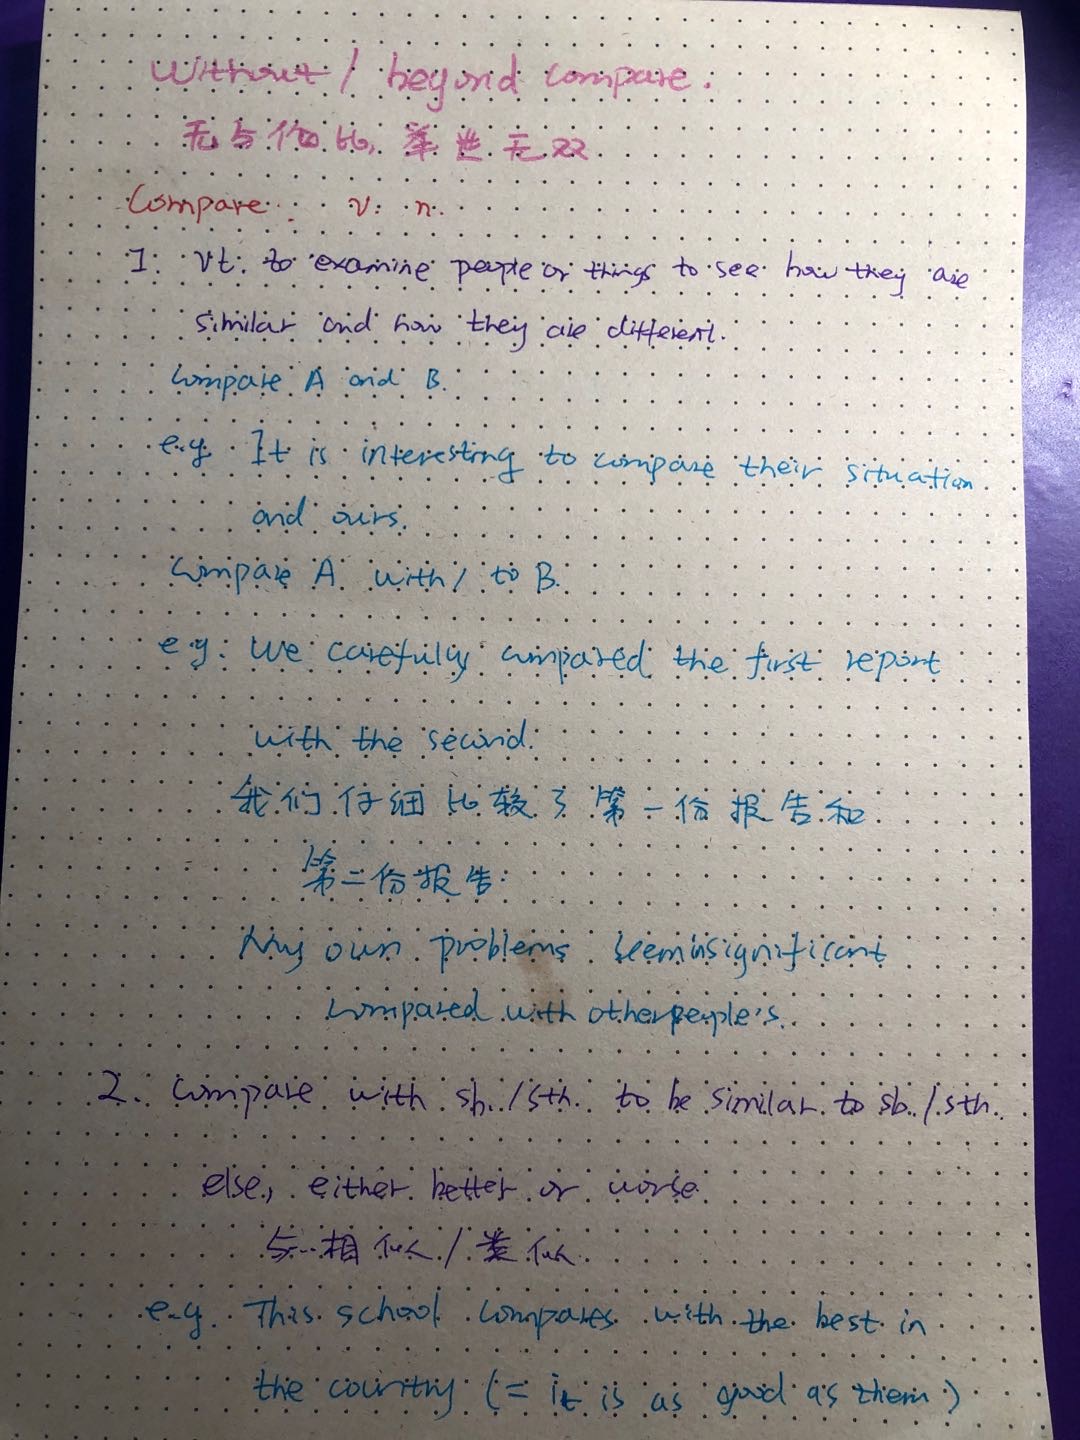 Without / beyond compare.
无与伦比, 举世无双
Compare v. n.
1. vt. to examine people or things to see how they are
similar and how they are different.
compare A and B.
e.g. It is interesting to compare their situation
and ours.
compare A with / to B.
e.g. We carefully compared the first report
with the second.
我们仔细比较了第一份报告和
第二份报告.
My own problems seem insignificant
compared with other people's.
2. compare with sb. / sth. to be similar to sb. / sth.
else, either better or worse.
与...相似 / 类似.
e.g. This school compares with the best in
the country (= it is as good as them)